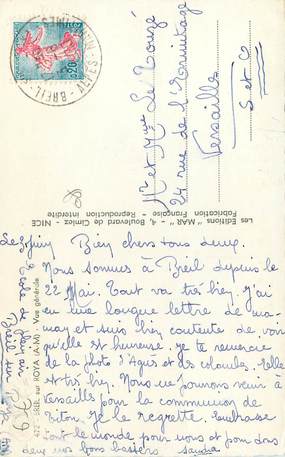 BREIL-
ALPES-MARITIMES
0,20
Mr et Mme Le Touzé
24 rue de l'Ermitage
Versailles
S et O
Les Editions "MAR" - 4, Boulevard de Cimiez, NICE
Fabrication Française - Reproduction interdite
472 - BREIL sur ROYA (A.-M) - Vue générale
Ecole de Plein air
Breil sur Roya
AM
Le juin Bien chers tous deux.
Nous sommes à Breil depuis le
22 Mai. Tout va très bien. J'ai
eu une longue lettre de ma-
man et suis bien contente de voir
qu'elle est heureuse. Je te remercie
de la photo d'Agnès et des colombes. Elle
est très bien. Nous ne pourrons venir à
Versailles pour la communion de
Titon. Je le regrette. Embrasse
tout le monde pour nous et pour vous
deux nos bons baisers